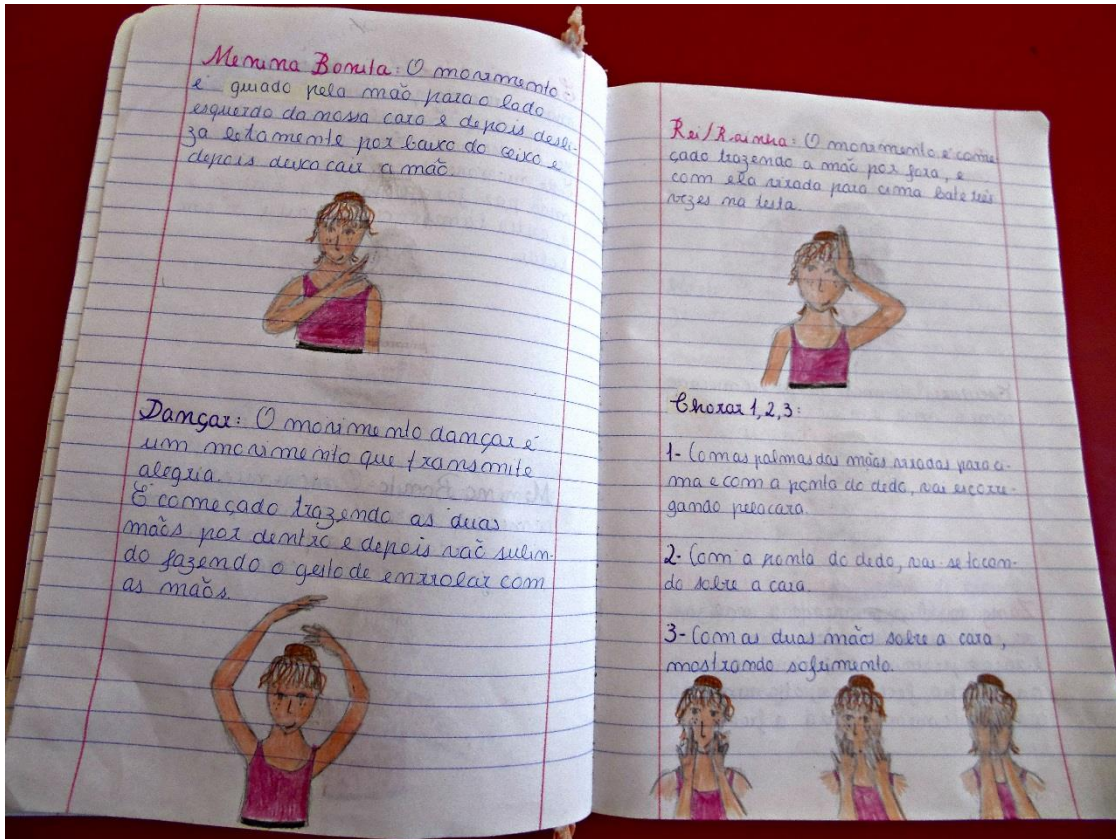 Menina Bonita: O movimento
é guiado pela mão para o lado
esquerdo da nossa cara e depois desli-
za letamente por baixo do ceixo e
depois deixo cair a mão.
Dançar: O movimento dançar é
um movimento que transmite
alegria.
É começado trazendo as duas
mãos por dentro e depois vão subin-
do fazendo o gesto de enrrolar com
as mãos.
Rei/Rainha: O movimento é come
çado trazendo a mão por fora, e
com ela virada para cima bate três
vezes na testa.
Chorar 1, 2, 3:
1- Com as palmas das mãos viradas para ci-
ma e com a ponta do dedo, vai escorre-
gando pela cara.
2- Com a ponta do dedo, vai-se tocan-
do sobre a cara.
3- Com as duas mãos sobre a cara,
mostrando sofrimento.